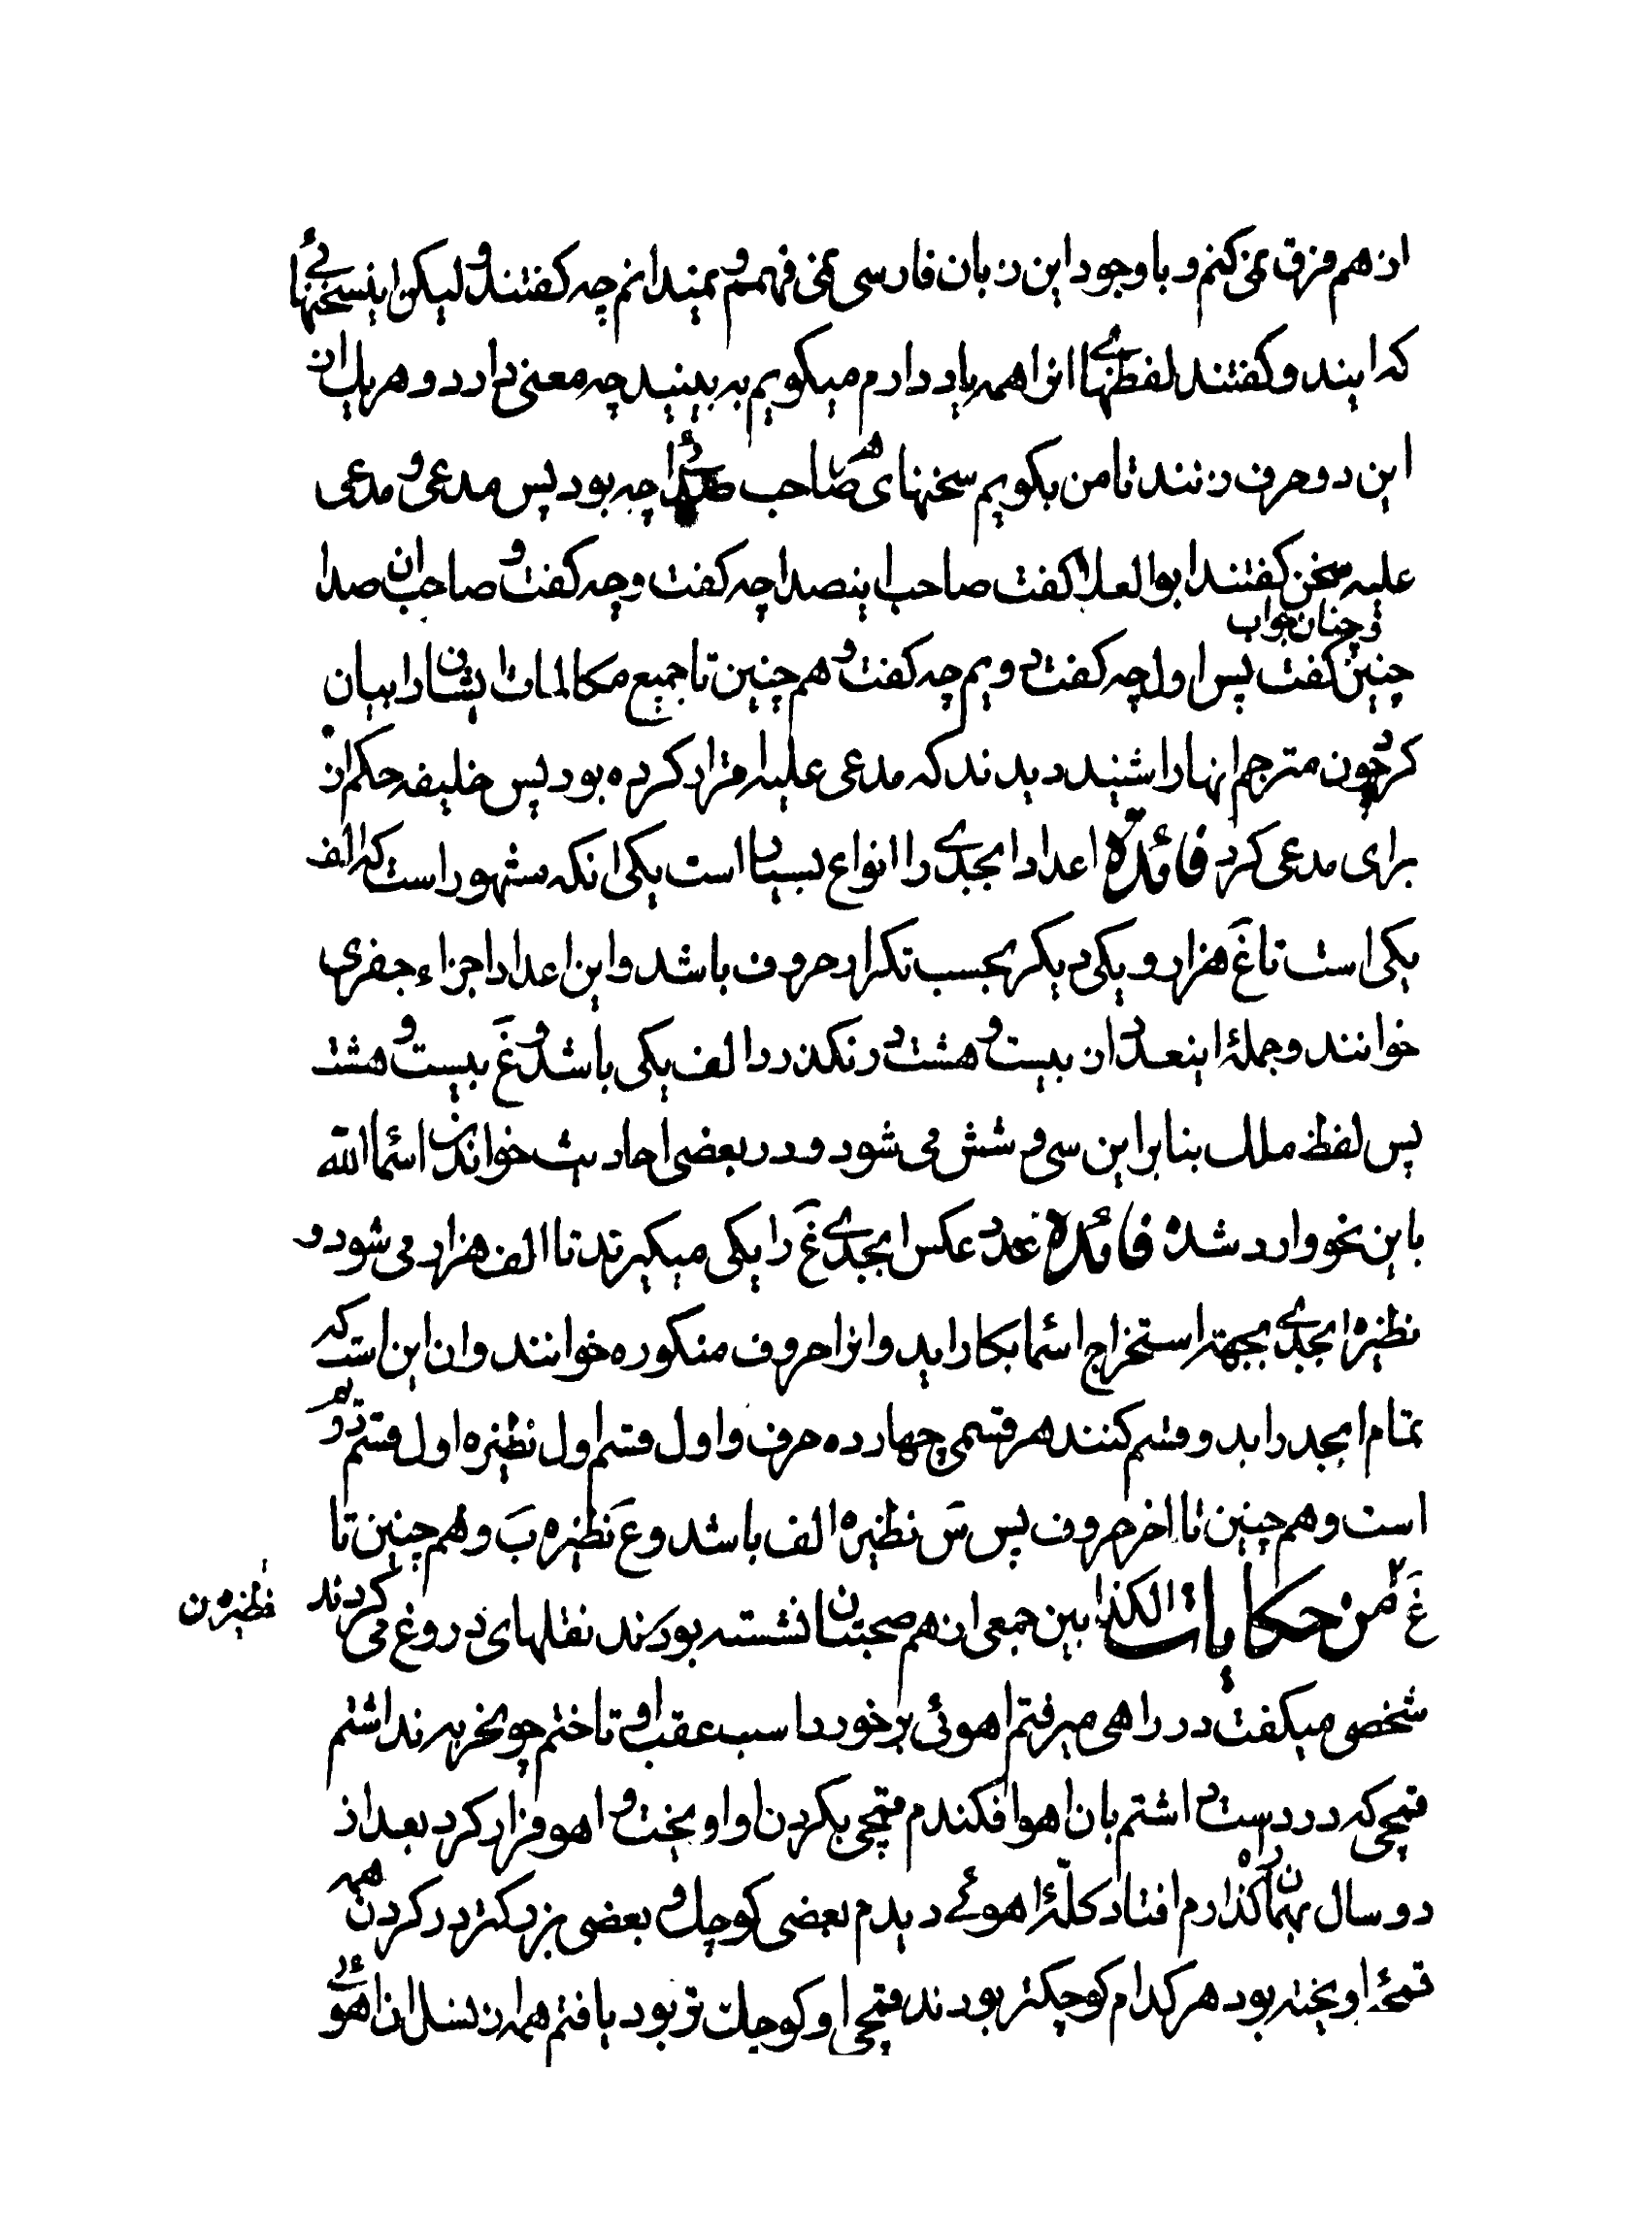 از هم فرق نمی کنم و باوجود این زبان فارسی نمی فهمم و نمیدانم چه کفتند و لیکن اینسخنهائی
که ایند و کفتند لفظهای انرا همه یاد دارم میکویم به بینید چه معنی دارد و هر یک ان
این دو حرف زنند تا من بکویم سخنهای هر صاحب صدائی چه بود پس مدعی و مدعی
علیه سخن کفتند ابوالعلا کفت صاحب اینصدا چه کفت و چه کفت و صاحب ان صدا
و چنان جواب
چنین کفت پس اول چه کفت دویم چه کفت و هم چنین تا جمیع مکالمات ایشان را بیان
کرد چون مترجم انها را شنید دیدند که مدعی علیه اقرار کرده بود پس خلیفه حکم ان
برای مدعی کرد فائدة اعداد ابجدی را انواع بسیار است یکی انکه مشهور است که الف
یکی است تا غ هزار و یکی دیکر بحسب تکرار حروف باشد و این اعداد اجزاء جفری
خوانند و جملهٔ اینعدد از بیست و هشت در نکذرد الف یکی باشد و غ بیست و هشت
پس لفظ ملک بنا بر این سی و شش می شود و در بعضی احادیث خواندن اسماء الله
باین نحو وارد شده فائدة عدد عکس ابجدی غ را یکی میکیرند تا الف هزار می شود و
نظیره ابجدی بجهة استخراج اسما بکار اید و انرا حروف منکوره خوانند و ان این است که
تمام ابجد را بدو قسم کنند هر قسمی چهارده حرف و اول قسم اول نظیره اول قسم دویم
است و هم چنین تا اخر حروف پس س نظیره الف باشد و ع نظیره ب و هم چنین تا
غ من حکایات الکذابین جمعی از هم صحبتان نشسته بودند نقلهای دروغ می کردند
نظیره ن
شخصی میکفت در راهی میرفتم اهوئی برخورد اسب عقب او تاختم چو نحربه نداشتم
قمچی که در دست داشتم بان اهو افکندم قمچی بکردن او اویخت و اهو فرار کرد بعد از
دو سال بهمان کذارم افتاد کلهٔ اهوئی دیدم بعضی کوچک و بعضی بزرکتر در کردن همه
قمچهٔ اویخته بود هر کدام کوچکتر بودند قمچی او کوچک تر بود یافتم همه از نسل ان اهوئی